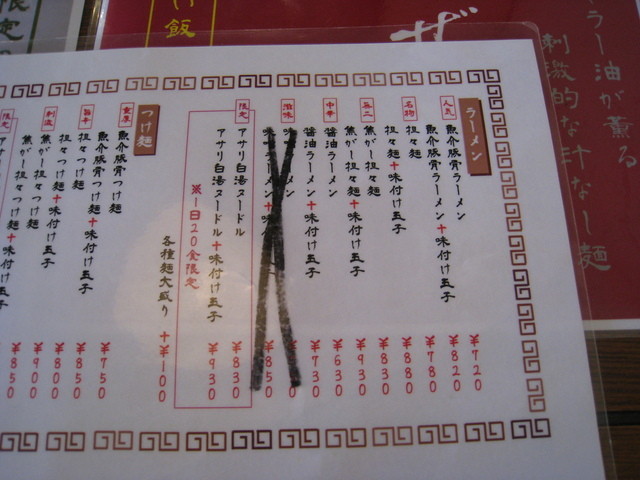 ラーメン
人気 魚介豚骨ラーメン ¥720
魚介豚骨ラーメン+味付け玉子 ¥820
名物 担々麺 ¥780
担々麺+味付け玉子 ¥880
無二 焦がし担々麺 ¥830
焦がし担々麺+味付け玉子 ¥930
中華 醤油ラーメン ¥630
醤油ラーメン+味付け玉子 ¥730
滋味
¥850
限定 アサリ白湯ヌードル ¥830
アサリ白湯ヌードル+味付け玉子 ¥930
※1日20食限定
各種麺大盛り +¥100
つけ麺
重厚 魚介豚骨つけ麺 ¥750
魚介豚骨つけ麺+味付け玉子 ¥850
旨辛 担々つけ麺 ¥800
担々つけ麺+味付け玉子 ¥900
刺激 焦がし担々つけ麺 ¥850
ラー油が薫る
刺激的な汁なし麺
ザ
け飯
限定